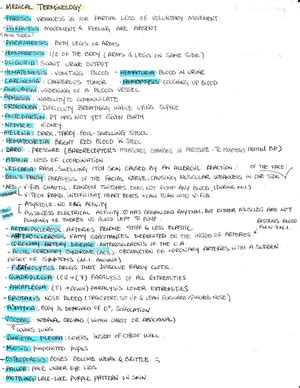 MEDICAL TERMINOLOGY
- PARESIS WEAKNESS IN OR PARTIAL LOSS OF VOLUNTARY MOVEMENT
- PARALYSIS MOVEMENT & FEELING ARE ABSENT
- PARAPARESIS: BOTH LEGS OR ARMS
- HEMIPARESIS: 1/2 OF THE BODY (ARMS & LEGS ON SAME SIDE)
- OLIGURIA: SCANT URINE OUTPUT
- HEMATEMESIS: VOMITING BLOOD - HEMATURIA BLOOD IN URINE
- CARCINOMA: CANCEROUS TUMOR - HEMOPTYSIS COUGHING UP BLOOD
- ANEURYSM: WIDENING OF A BLOOD VESSEL
- APHASIA: INABILITY TO COMMUNICATE
- ORTHOPNEA: DIFFICULTY BREATHING WHILE LYING SUPINE
- ANTEPARTUM: PT HAS NOT YET GIVEN BIRTH
- NEPHRIC: KIDNEY
- MELENA: DARK, TARRY, FOUL-SMELLING STOOL
- HEMATOCHEZIA: BRIGHT RED BLOOD IN STOOL
- BARO: PRESSURE (BARORECEPTORS MEASURES CHANGES IN PRESSURE - TO MAINTAIN NORMAL BP)
- ATAXIA: LOSS OF COORDINATION
- URTICARIA: RASH, SWELLING, ITCHY SKIN CAUSED BY AN ALLERGIC REACTION
- BELL'S PALSY: PARALYSIS OF THE FACIAL NERVE, CAUSING MUSCULAR WEAKNESS IN ONE SIDE OF THE FACE
- AED - V-FIB CHAOTIC, RANDOM TWITCHES DOES NOT PUMP ANY BLOOD (DURING M.I.)
V-TECH RAPID, INEFFICIENT HEART BEATS → CAN TURN INTO V-FIB
ASYSTOLE: NO EKG ACTIVITY
PULSELESS ELECTRICAL ACTIVITY: HAS ORGANIZED RHYTHM, BUT EITHER MUSCLES ARE NOT
PUMPING OR THERE'S NO BLOOD LEFT TO PUMP
- ARTERIOSCLEROSIS: ARTERIES BECOME STIFF & LESS ELASTIC
- ATHEROSCLEROSIS: FATTY SUBSTANCES DEPOSITED ON THE INSIDE OF ARTERIES
- CORONARY ARTERY DISEASE: ATHEROSCLEROSIS OF THE C.A.
- ACUTE CORONARY SYNDROME (ACS): OBSTRUCTION OF CORONARY ARTERIES WITH A SUDDEN
ONSET OF SYMPTOMS (M.I. ANGINA)
- FIBRINOLYTICS: DRUGS THAT DISSOLVE BLOOD CLOTS
- QUADRIPLEGIA: PARALYSIS OF ALL EXTREMITIES
- PARAPLEGIA: PARALYSIS LOWER EXTREMITIES
- EPISTAXIS: NOSE BLEED (TREATMENT: SIT UP & LEAN FORWARD/PINCH NOSE)
- ASPHYXIA: BODY IS DEPRIVED OF O², SUFFOCATION
- VISCERAL: INTERNAL ORGANS (WITHIN CHEST OR ABDOMINAL)
COVERS LUNG
- PARIETAL PLEURA: COVERS INSIDE OF CHEST WALL
- MIOSIS: PINPOINTED PUPILS
- OSTEOPOROSIS: BONES BECOME WEAK & BRITTLE
- PALLOR: PALE UNDER EYE LIDS
- MOTTLING: LACE-LIKE PURPLE PATTERN ON SKIN